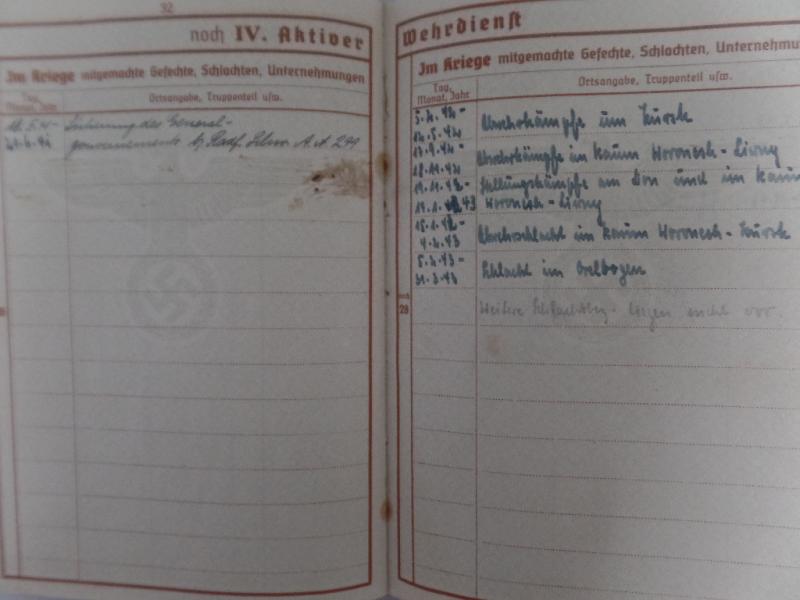 32
noch IV. Aktiver
Im Kriege mitgemachte Gefechte, Schlachten, Unternehmungen
Tag, Monat, Jahr
Ortsangabe, Truppenteil usw.
Sicherung des General-
gouvernements b/ Radf. Schw. A.A 299
Wehrdienst
Im Kriege mitgemachte Gefechte, Schlachten, Unternehmu
Tag, Monat, Jahr
Ortsangabe, Truppenteil usw.
Abwehrkämpfe um Kursk
Abwehrkämpfe im Raum Woronesh - Liwny
18.11.42
19.11.42 - Stellungskämpfe am Don und im Raum
Woronesh - Liwny
Abwehrschlacht im Raum Woronesh - Kursk
4.2.43
5.2.43 - Schlacht im Orelbogen
31.3.43
noch 28
Weitere liegen nicht vor.